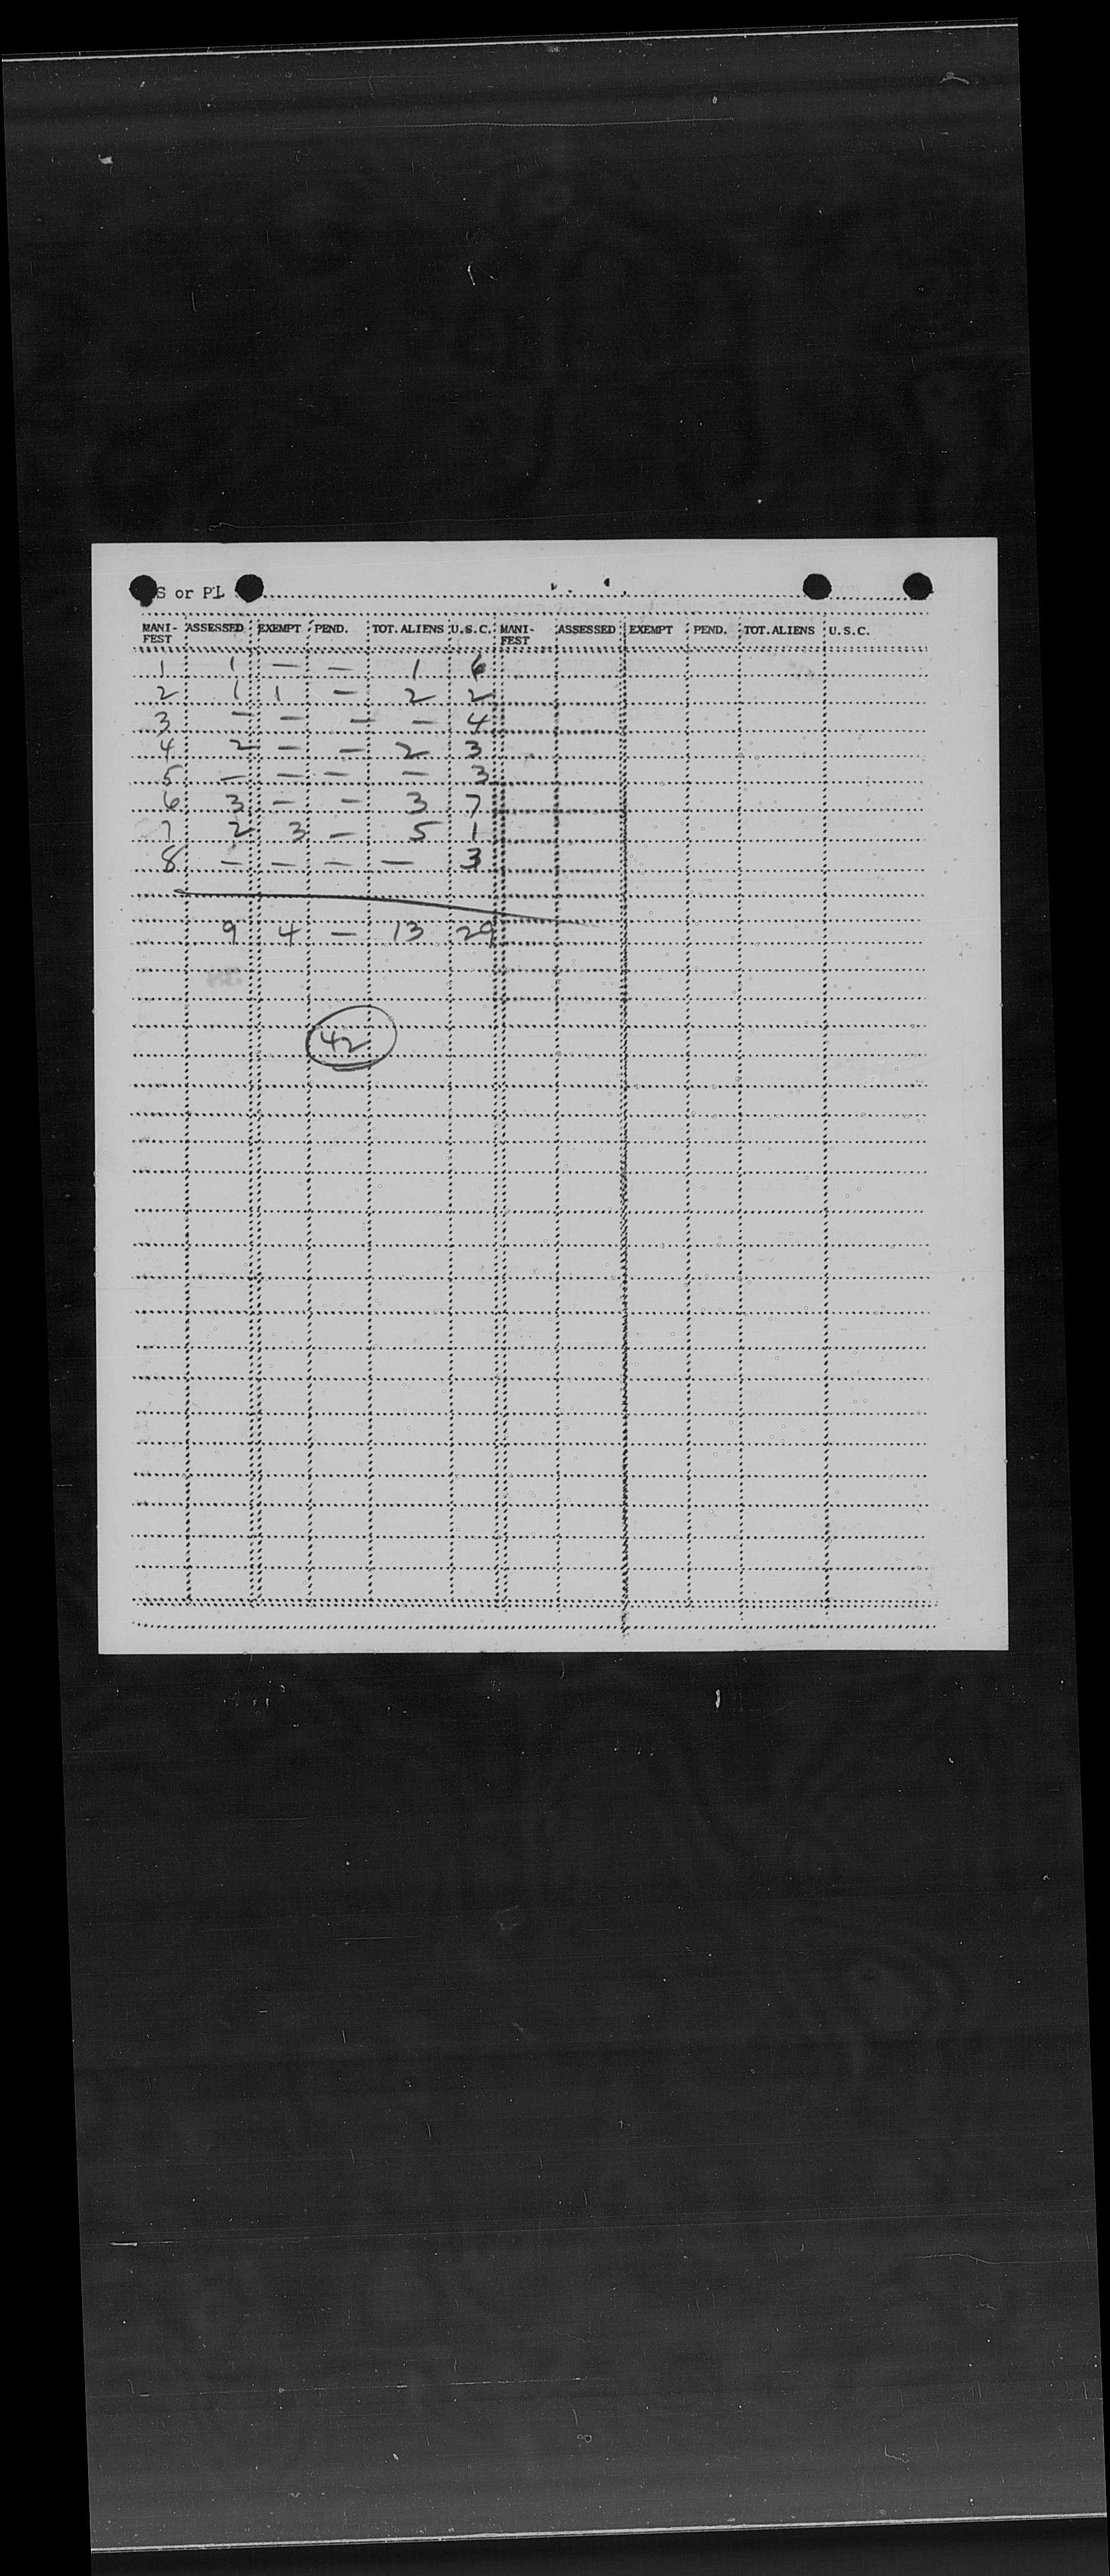 S or PL
MANI-FEST ASSESSED EXEMPT PEND. TOT. ALIENS U.S.C. MANI-FEST ASSESSED EXEMPT PEND. TOT. ALIENS U.S.C.
1 1 — — 1 6
2 1 1 — 2 2
3 — — — — 4
4 2 — — 2 3
5 — — — — 3
6 3 — — 3 7
7 2 3 — 5 1
8 — — — — 3
9 4 — 13 29
42